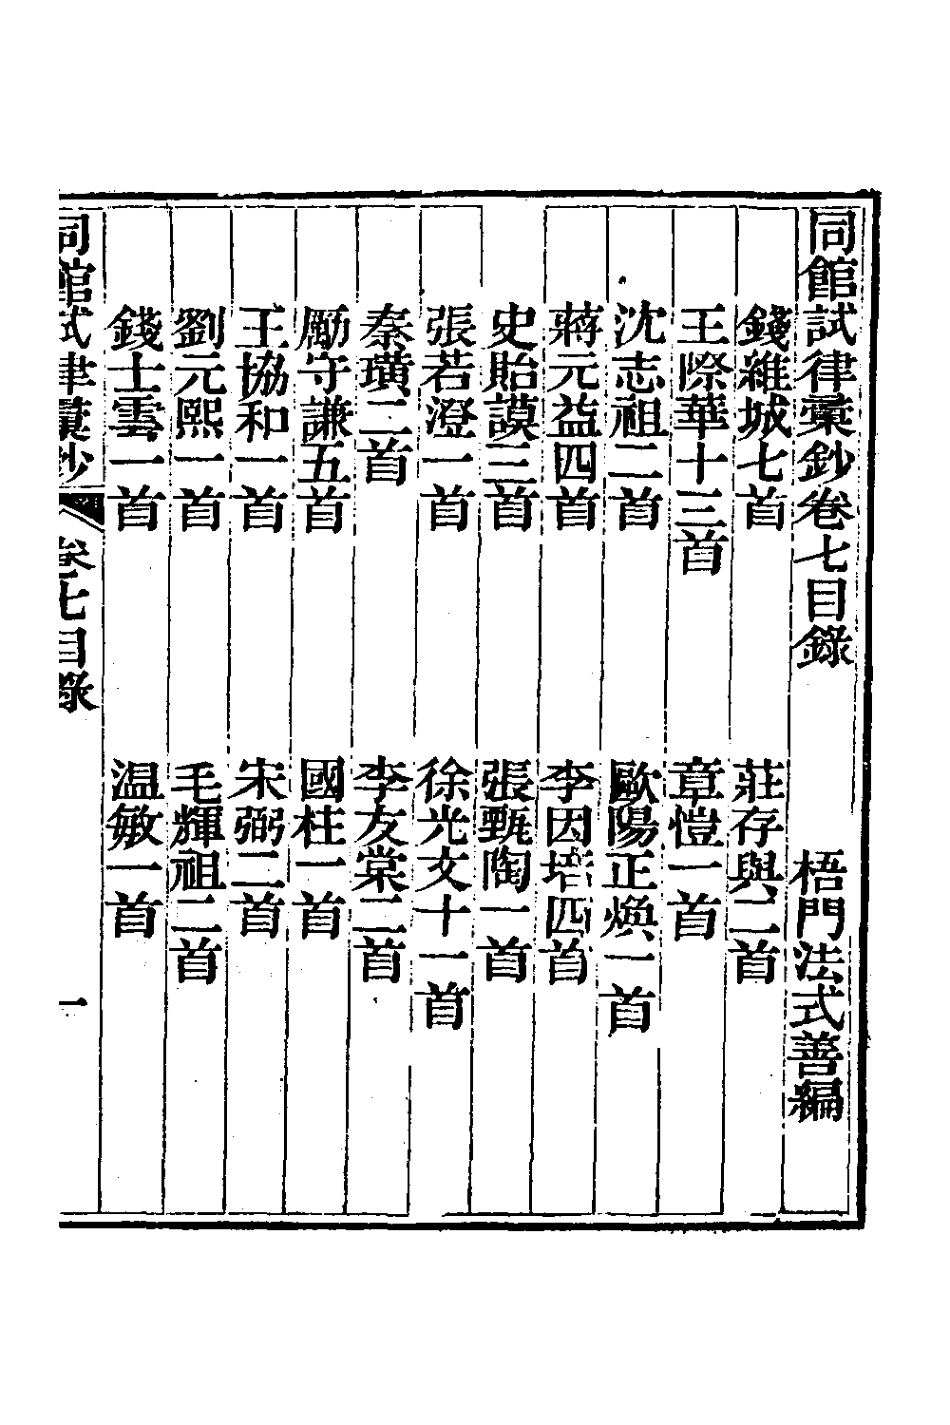 同館試律彚鈔卷七目錄　梧門法式善編
錢維城七首　莊存與二首
王際華十三首　章愷一首
沈志祖二首　歐陽正煥一首
蔣元益四首　李因培四首
史貽謨三首　張甄陶一首
張若澄一首　徐光文十一首
秦璜二首　李友棠二首
勵守謙五首　國柱一首
王協和一首　宋弼二首
劉元熙一首　毛輝祖二首
錢士雲一首　温敏一首
同館試律彚鈔　卷七目錄　一